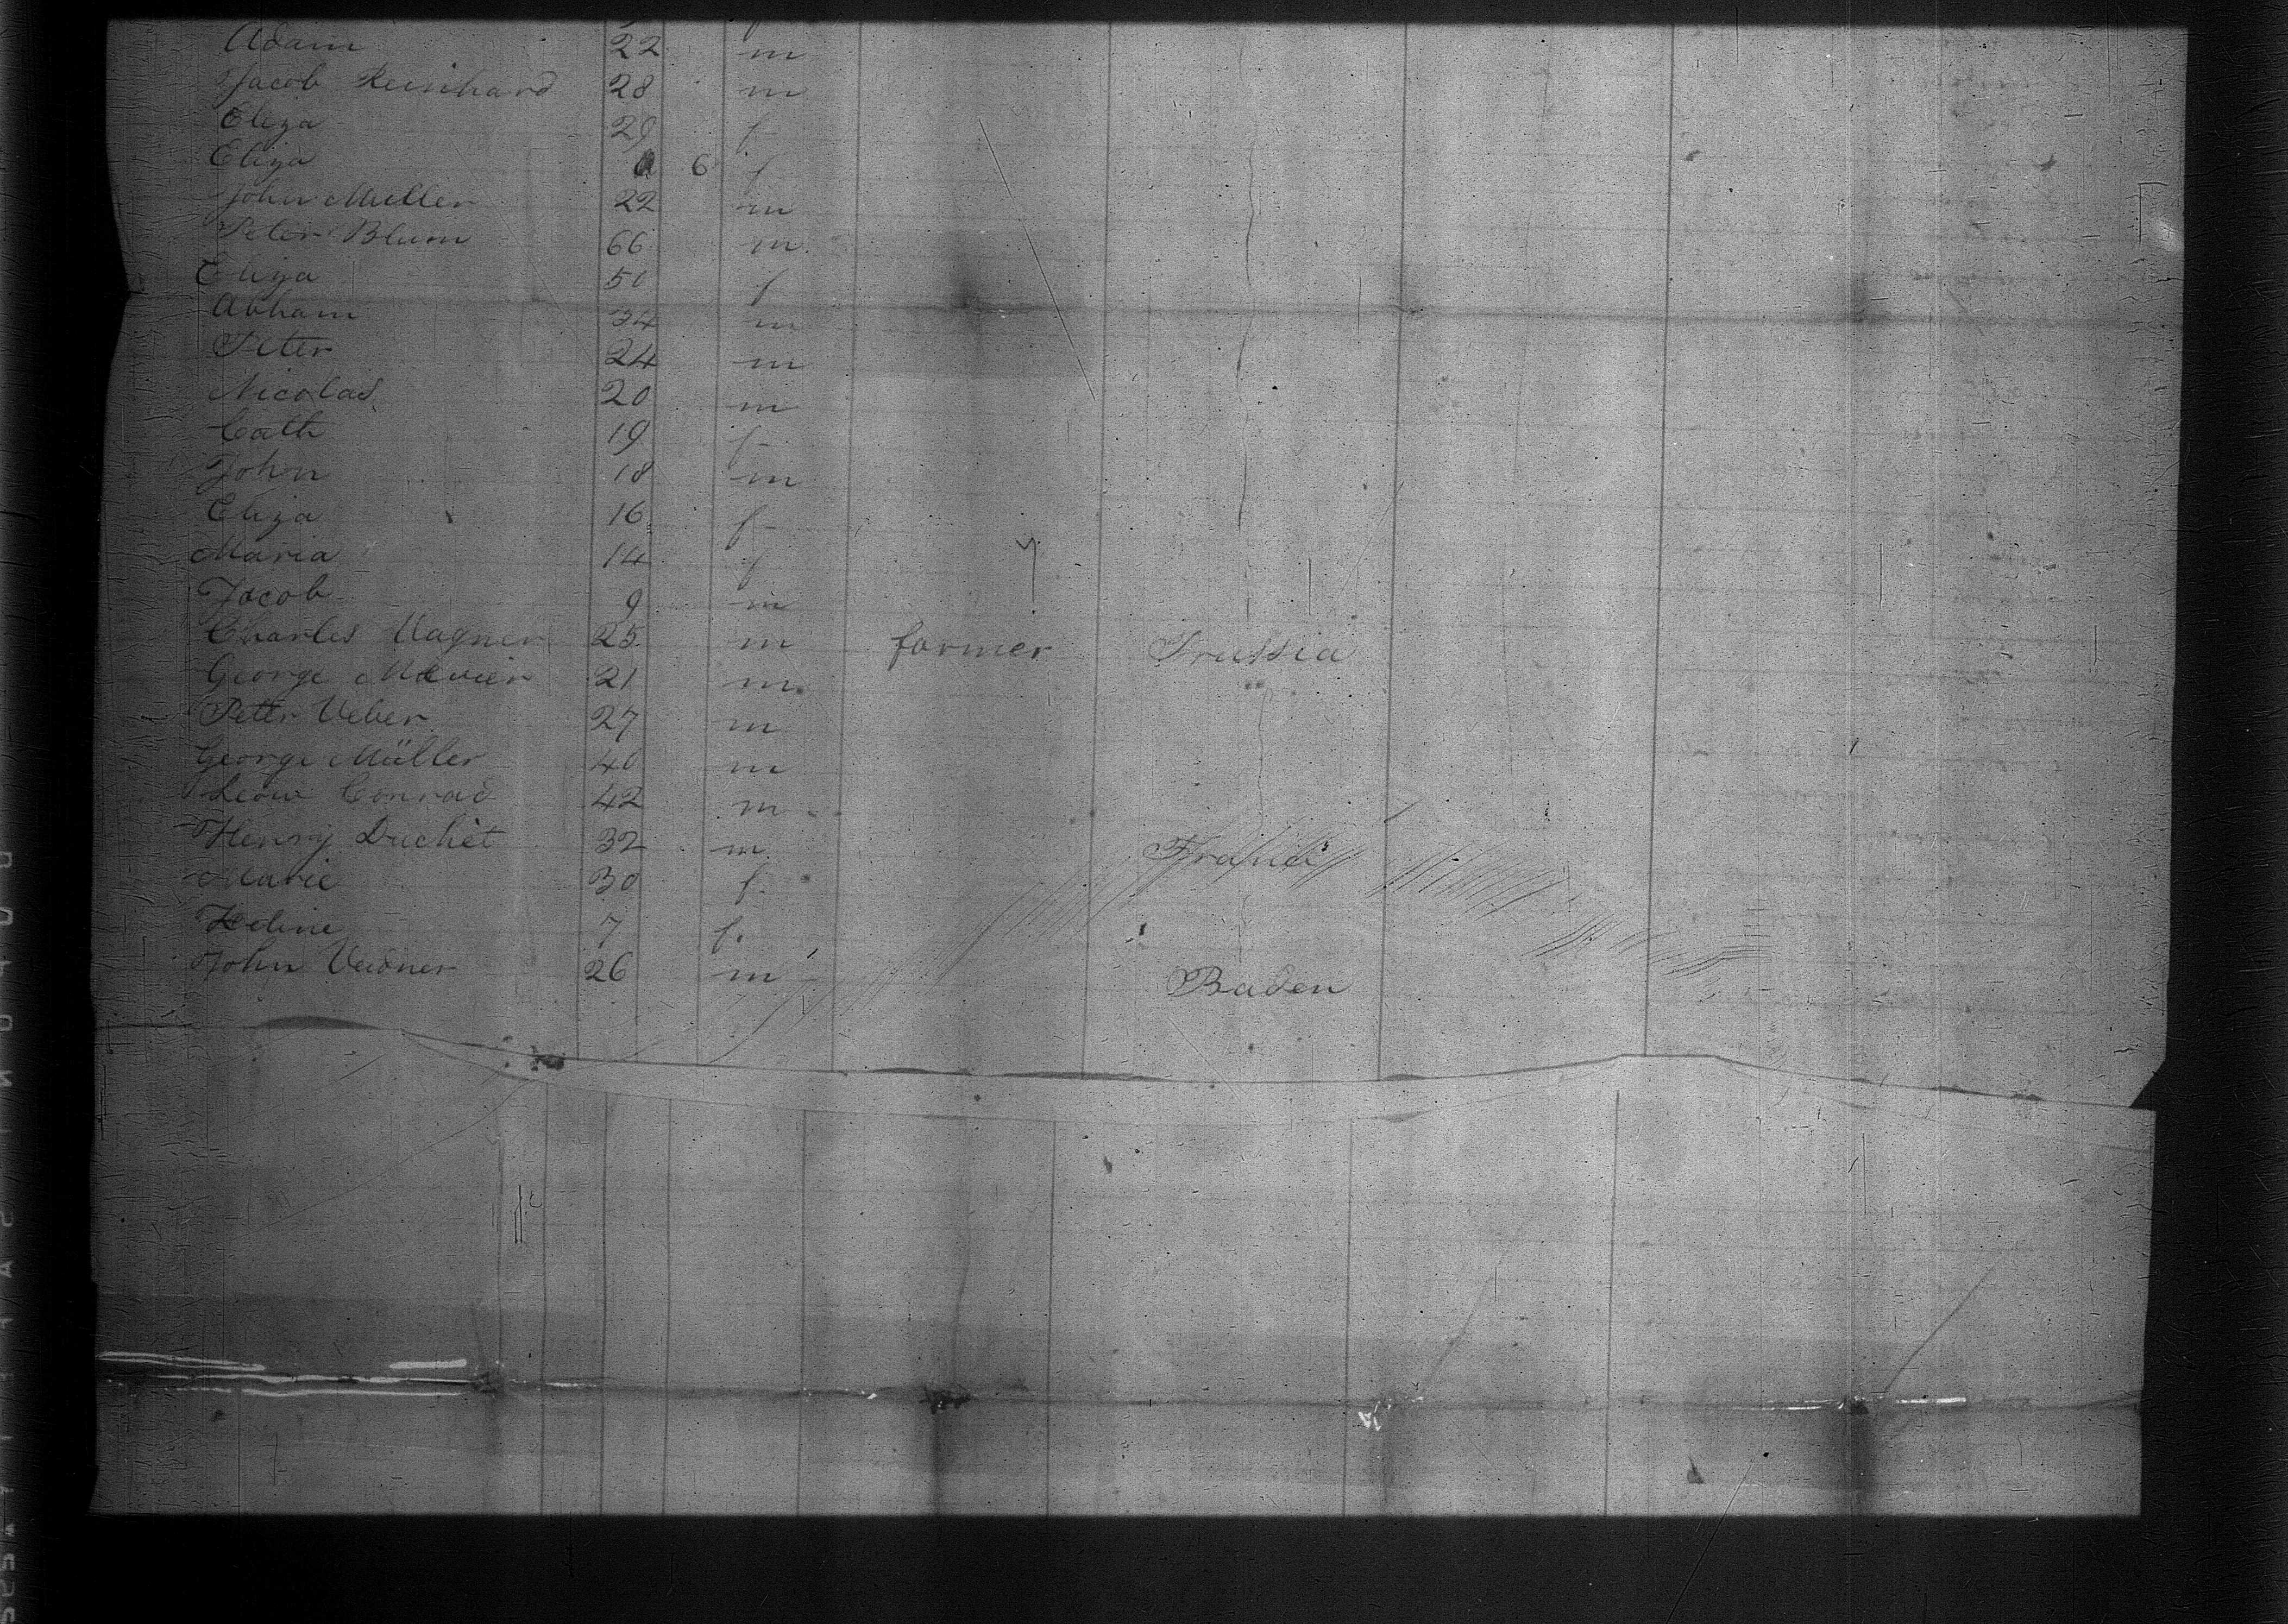 Adam 22 m
Jacob Reinhard 28 m
Eliza 29 f
Eliza 6 f
John Muller 22 m
Peter Blum 66 m
Eliza 50 f
Abham 34 m
Peter 24 m
Nicolas 20 m
Cath 19 f
John 18 m
Eliza 16 f
Maria 14 f
Jacob 9 m
Charles Wagner 25 m farmer Prussia
George 21 m
Peter Weber 27 m
George Müller 40 m
Conrad 42 m
Henry Duchet 32 m
Marie 30 f
Zeline 7 f.
John 26 m Baden